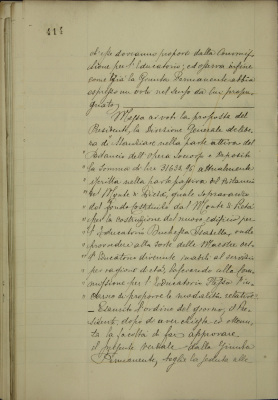 414
che dovranno proporre dalla Commis-
sione per l'Educatorio; ed opera infine
come già la Giunta Permanente abbia
espresso un voto nel senso da lui propu-
gnato,
Messa ai voti la proposta del
Presidente, la Direzione Generale delibe-
ra di stanziare nella parte attiva del
Bilancio dell'Opera
la somma di lire 31632 attualmente
iscritta nella parte passiva del Bilancio
del Monte
del fondo costituito dal Monte
per la costruzione del nuovo edificio per
l'Educatorio Duchessa Isabella, onde
provvedere alla sorte delle Maestre del-
l'Educatorio divenute inabili al servizio
per ragione di età, lasciando alla Com-
missione per l'Educatorio stesso l'in-
carico di proporre le modalità relative
Esaurito l'ordine del giorno, il Pre-
sidente, dopo di aver chiesto ed ottenu-
ta la facoltà di far approvare
il presente verbale dalla Giunta
Permanente, scioglie la seduta alle